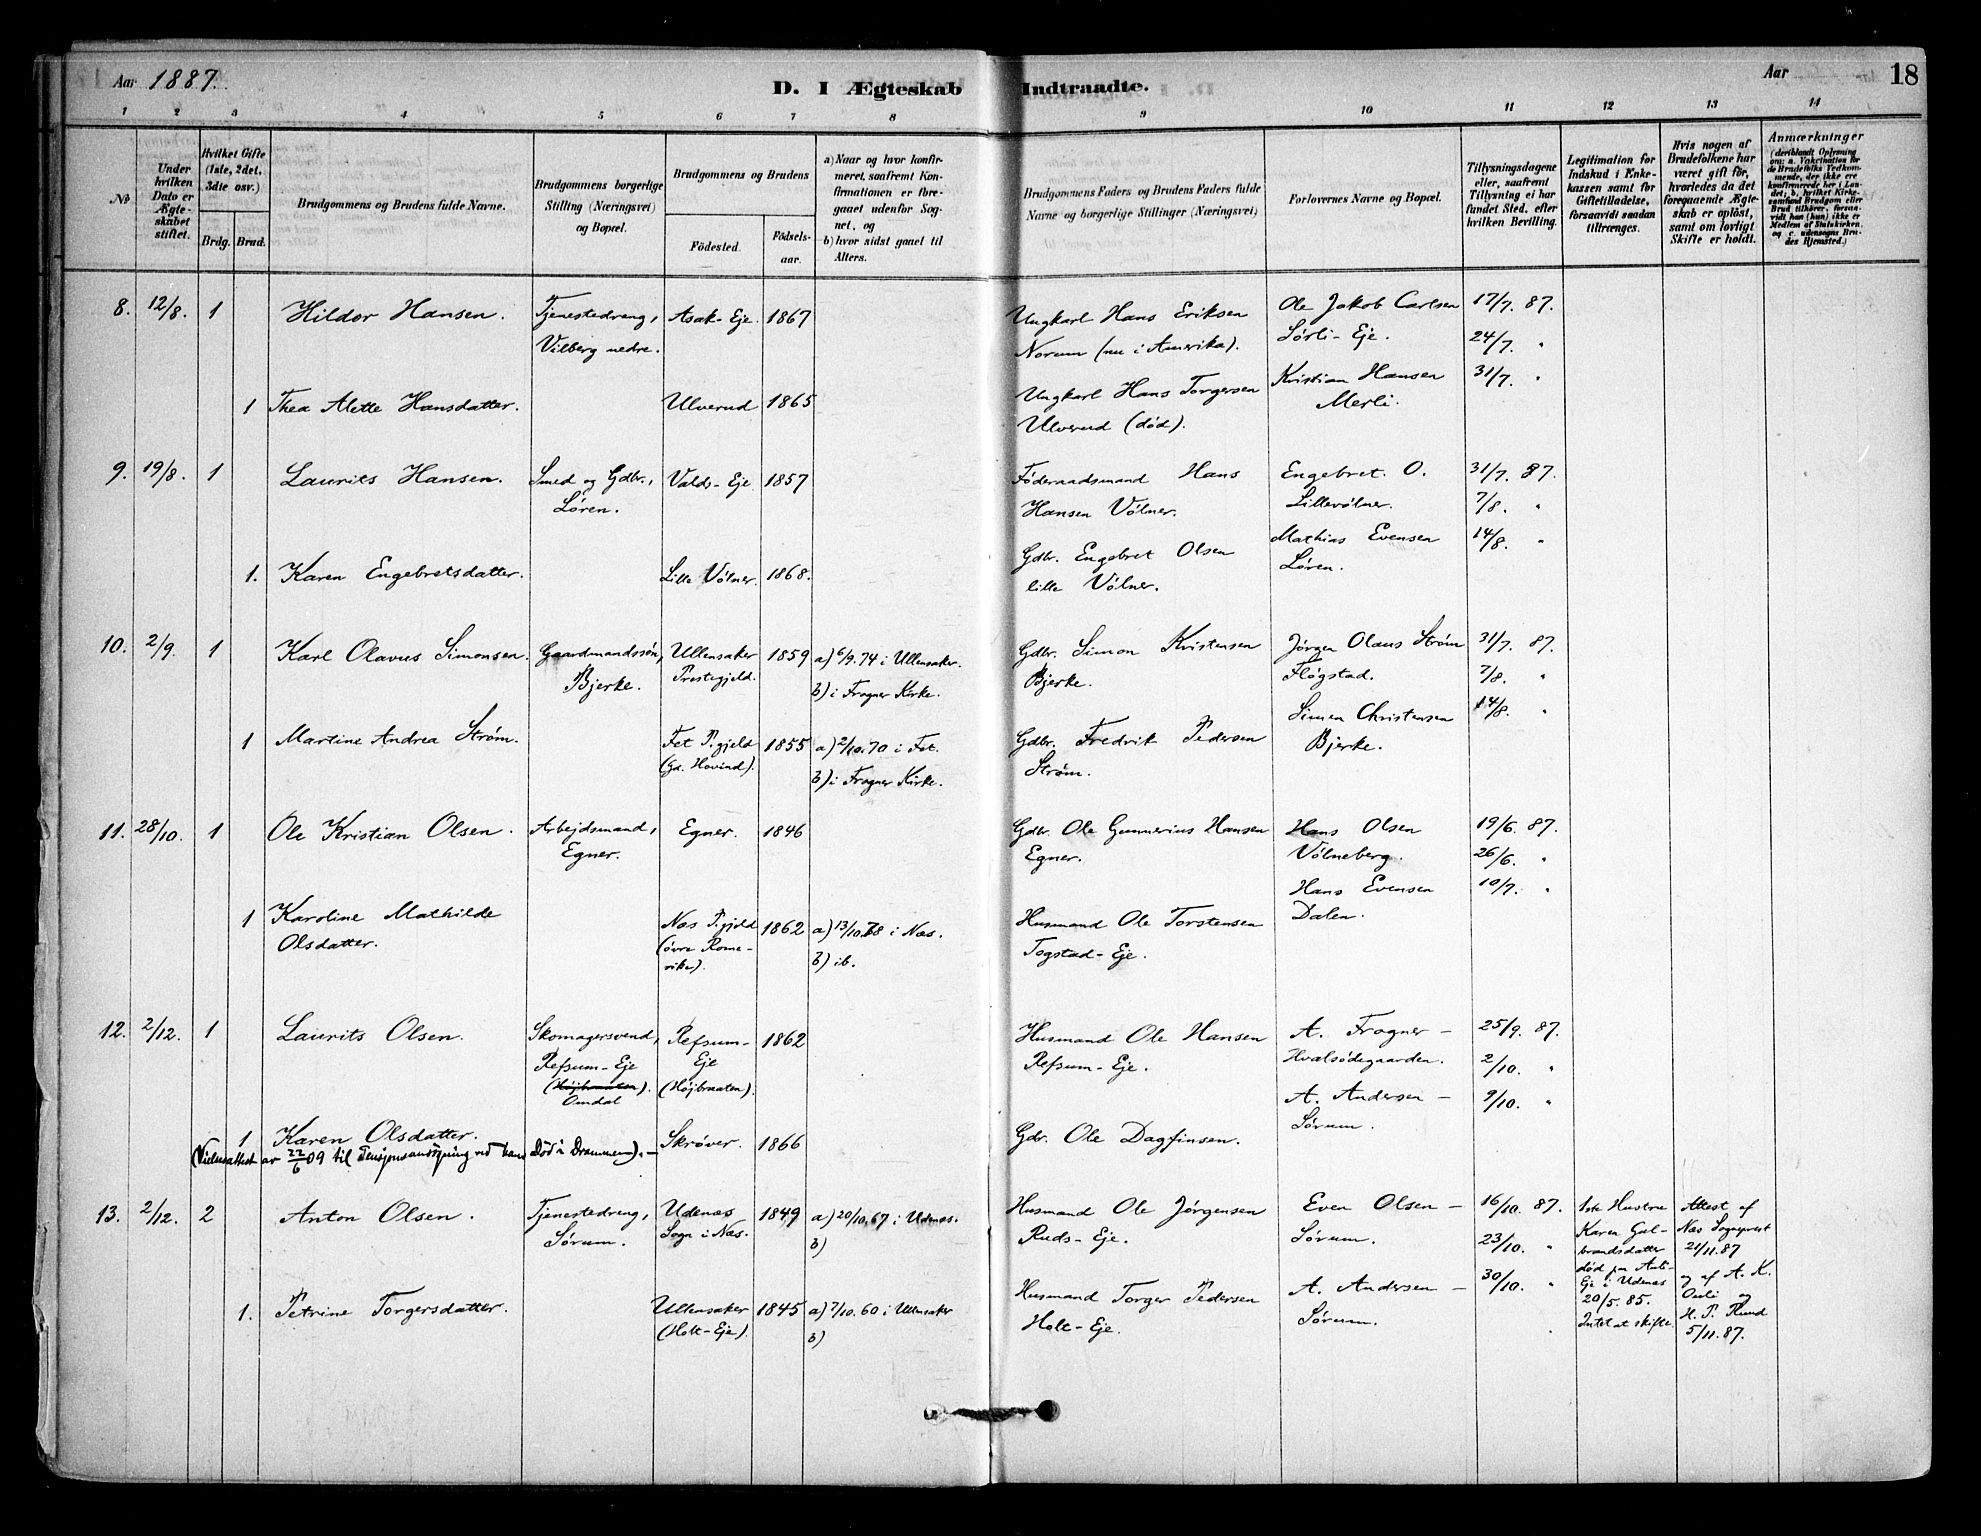 Aar 1887.
D. I Ægteskab Indtraadte.
Aar 18
1 2 3 4 5 6 7 8 9 10 11 12 13 14
No
Under hvilken Dato er Ægteskabet stiftet.
Hvilket Gifte (1ste, 2det, 3die osv.)
Brdg. Brud.
Brudgommens og Brudens fulde Navne.
Brudgommens borgerlige Stilling (Næringsvei) og Bopæl.
Brudgommens og Brudens
Fødested. Fødselsaar.
a) Naar og hvor konfirmeret, saafremt Konfirmationen er foregaaet udenfor Sognet, og
b) hvor sidst gaaet til Alters.
Brudgommens Faders og Brudens Faders fulde Navne og borgerlige Stillinger (Næringsvei)
Forlovernes Navne og Bopæl.
Tillysningsdagene eller, saafremt Tillysning ei har fundet Sted, efter hvilken Bevilling.
Legitimation for Indskud i Enkekassen samt for Giftetilladelse, forsaavidt saadan tiltrænges.
Hvis nogen af Brudefolkene har været gift før, hvorledes da det foregaaende Ægteskab er opløst, samt om lovligt Skifte er holdt.
Anmærkninger
(deriblandt Oplysning om: a. Vakcination for de Brudefolks Vedkommende, der ikke ere konfirmerede her i Landet; b. hvilket Kirkesamfund Brudgom eller Brud tilhører, forsaavidt han (hun) ikke er Medlem af Statskirken, og c. udensogns Brudes Hjemsted.)
8. 12/8. 1 Hildor Hansen. Tjenestedreng, Asak-Eje. 1867 Ungkarl Hans Eriksen Ole Jakob Carlsen 17/7. 87.
Vilberg nedre. Norum (nu i Amerika). Sørli-Eje. 24/7. "
1 Thea Alette Hansdatter. Ulverud 1865 Ungkarl Hans Torgersen Kristian Hansen 31/7. "
Ulverud (død). Merli.
9. 19/8. 1 Laurits Hansen. Smed og Gdbr., Valds-Eje 1857 Føderaadsmand Hans Engebret. O. 31/7. 87.
Løren. Hansen Vølner. Lillevølner. 7/8. "
1. Karen Engebretsdatter. Lille Vølner. 1868. Gdbr. Engebret Olsen Mathias Evensen 14/8. "
lille Vølner. Løren.
10. 2/9. 1 Karl Olavus Simonsen. Gaardmandssøn, Ullensaker 1859 a) 6/9. 74 i Ullensaker. Gdbr. Simon Kristensen Jørgen Olaus Strøm 31/7. 87.
Bjerke. Prestegjeld. b) i Frogner Kirke. Bjerke. Fløgstad. 7/8. "
1 Martine Andrea Strøm. Fet P.gjeld 1855 a) 2/10. 70 i Fet. Gdbr. Fredrik Pedersen Simen Christensen 14/8. "
(Gd. Hovind). b) i Frogner Kirke. Strøm. Bjerke.
11. 28/10. 1 Ole Kristian Olsen. Arbejdsmand, Egner. 1846 Gdbr. Ole Gunnerius Hansen Hans Olsen 19/6. 87.
Egner. Egner. Vølneberg. 26/6. "
1 Karoline Mathilde Næs P.gjeld 1862 a) 13/10. 78 i Næs. Husmand Ole Torstensen Hans Evensen 10/7. "
Olsdatter. (øvre Romerike). b) ib. Togstad-Eje. Dalen.
12. 2/12. 1 Laurits Olsen. Skomagersvend, Refsum- 1862 Husmand Ole Hansen A. Frogner - 25/9. 87.
Refsum-Eje Eje Refsum-Eje. Hvalsødegaarden. 2/10. "
(Højbraaten). (Højbraaten). A. Andersen - 9/10. "
Omdal Sørum.
1 Karen Olsdatter. Skrøver. 1866 Gdr. Ole Dagfinsen.
(Vielsesattest av 22/6 09 til Pensjonsansøgning ved hans Død i Drammen). -
13. 2/12. 2 Anton Olsen. Tjenestedreng, Udenæs 1849 a) 20/10. 67 i Udenæs. Husmand Ole Jørgensen Even Olsen - 16/10. 87. 1ste Hustru Attest af
Sørum. Sogn i Næs. b) Ruds-Eje. Sørum. 23/10. " Karen Gulbrandsdatter Næs Sogneprest 21/11.87
1. Petrine Torgersdatter. Ullensaker 1845 a) 7/10. 60 i Ullensaker Husmand Torger Pedersen A. Andersen - 30/10. " død paa Eje i Udenæs og af A. K.
(Holt-Eje). b) Holt-Eje. Sørum. 20/5. 85. og H. P.
Intet at skifte. 5/11. 87.